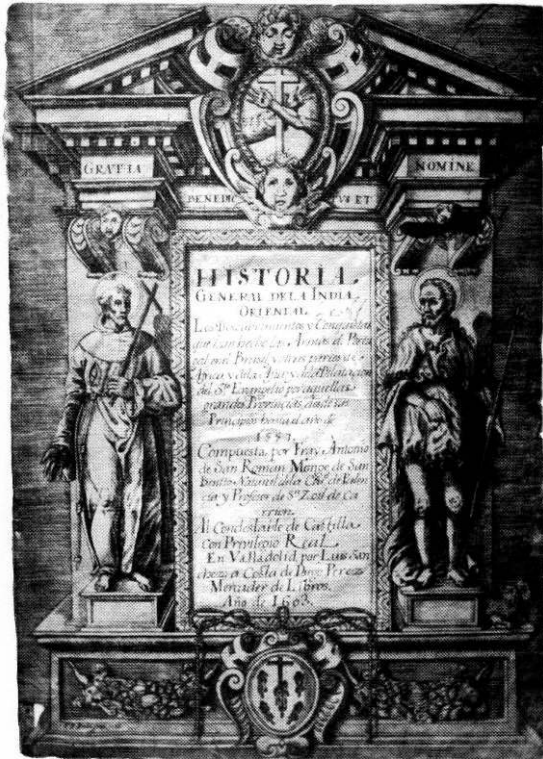 GRATIA
NOMINE
BENEDIC
VS ET
HISTORIA
GENERAL DE LA INDIA
ORIENTAL
Los Descubrimientos y Conquistas
que han hecho las Armas de Portu
gal en el Brasil y otras partes de
Africa y de la Asia y de la Dilatacion
del S.to Evangelio por aquellas
grandes Provincias, desde sus
Principios hasta el año de
1557.
Compuesta por Fray Antonio
de San Roman Monge de San
Benito Natural de la de Palen
cia y Profeso de S. Zoil de Ca
rrion.
Al Condestable de Castilla
Con Privilegio Real
En Valladolid por Luis San
chez a Costa de Diego Perez
Mercader de Libros.
Año de 1603.